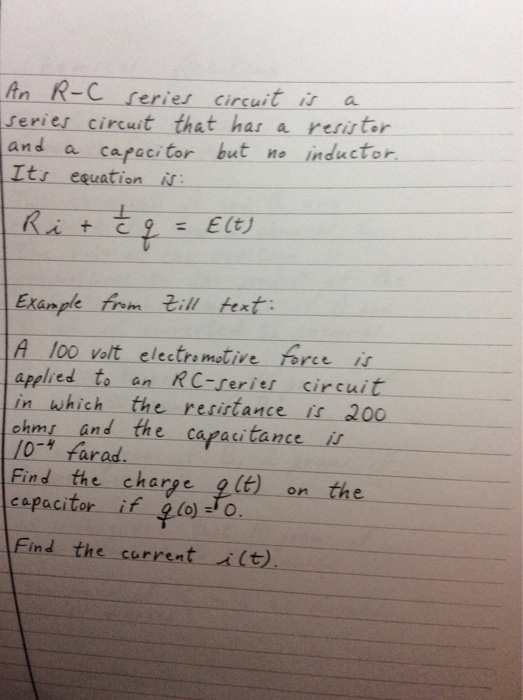 An R-C series circuit is a
series circuit that has a resistor
and a capacitor but no inductor.
Its equation is:
Ri + 1/C q = E(t)
Example from Zill text:
A 100 volt electromotive force is
applied to an RC-series circuit
in which the resistance is 200
ohms and the capacitance is
10⁻⁴ farad.
Find the charge q(t) on the
capacitor if q(0) = 0.
Find the current i(t).